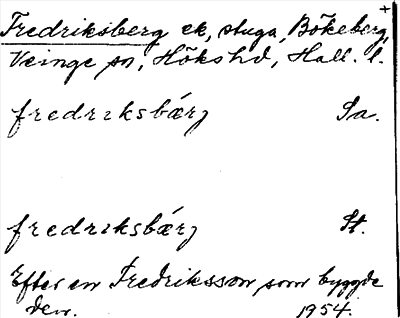 Fredriksberg ek, stuga, Bökeberg, +
Veinge sn, Höks hd, Hall. l.
fredrıksbǽrj Sa.
fredrıksbǽrj St.
Efter en Fredriksson som byggde
den. 1954.